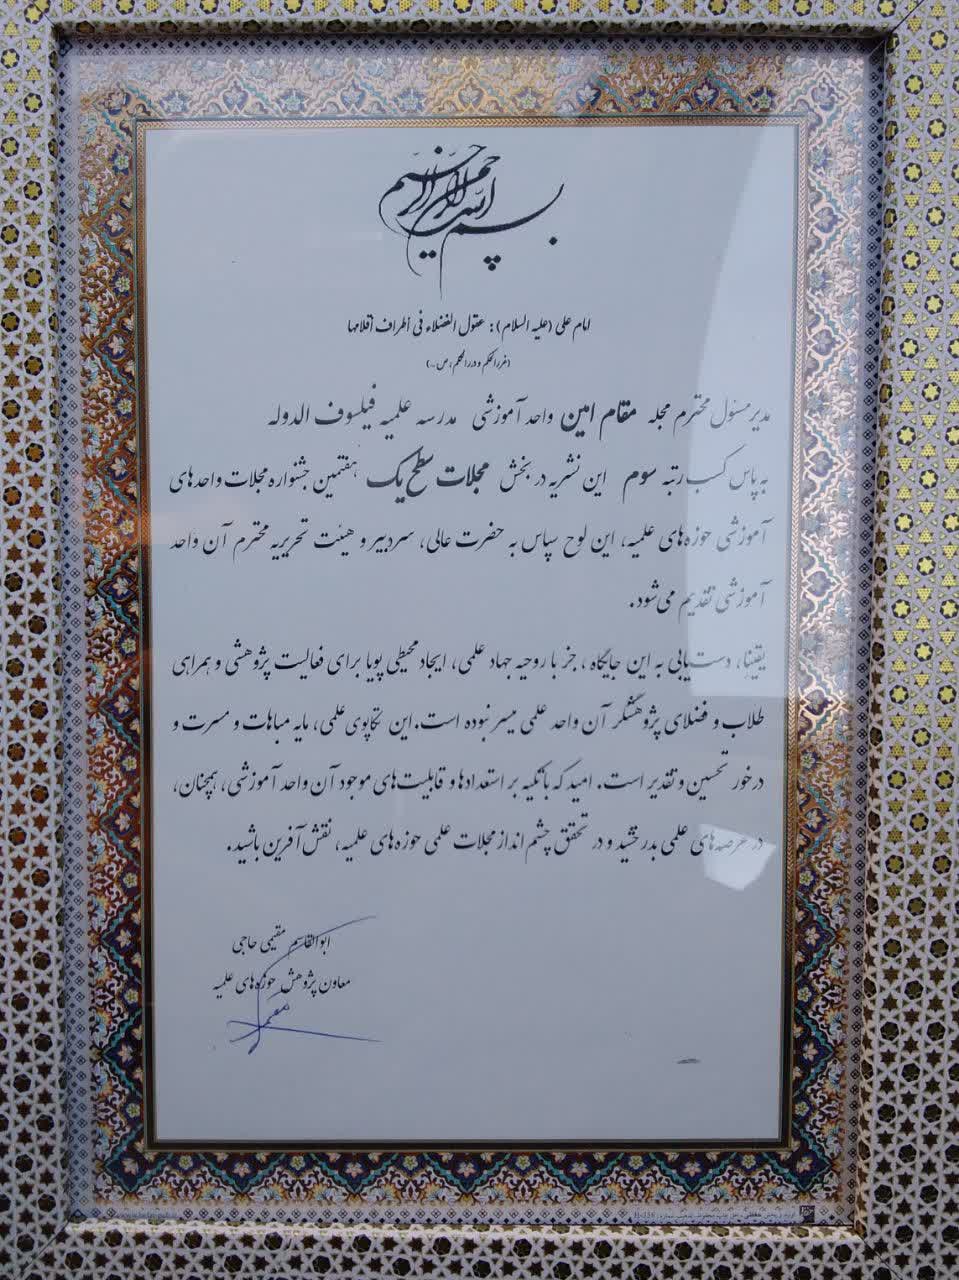 بسم الله الرحمن الرحیم
امام علی (علیه السلام): عقول الفضلاء فی أطراف أقلامها
(غررالحکم و دررالکلم، ص
مدیر مسئول محترم مجله مقام امین واحد آموزشی مدرسه علمیه فیلسوف الدوله
به پاس کسب رتبه سوم این نشریه در بخش مجلات سطح یک هفتمین جشنواره مجلات واحدهای
آموزشی حوزه‌های علمیه، این لوح سپاس به حضرت عالی، سردبیر و هیئت تحریریه محترم آن واحد
آموزشی تقدیم می‌شود.
یقینا، دست‌یابی به این جایگاه، جز با روحیه جهاد علمی، ایجاد محیطی پویا برای فعالیت پژوهشی و همراهی
طلاب و فضلای پژوهشگر آن واحد علمی میسر نبوده است. این تکاپوی علمی، مایه مباهات و مسرت و
درخور تحسین و تقدیر است. امید که با تکیه بر استعدادها و قابلیت‌های موجود آن واحد آموزشی، همچنان،
در عرصه‌های علمی بدرخشید و در تحقق چشم انداز مجلات علمی حوزه‌های علمیه، نقش آفرین باشید.
ابوالقاسم مقیمی حاجی
معاون پژوهش حوزه‌های علمیه